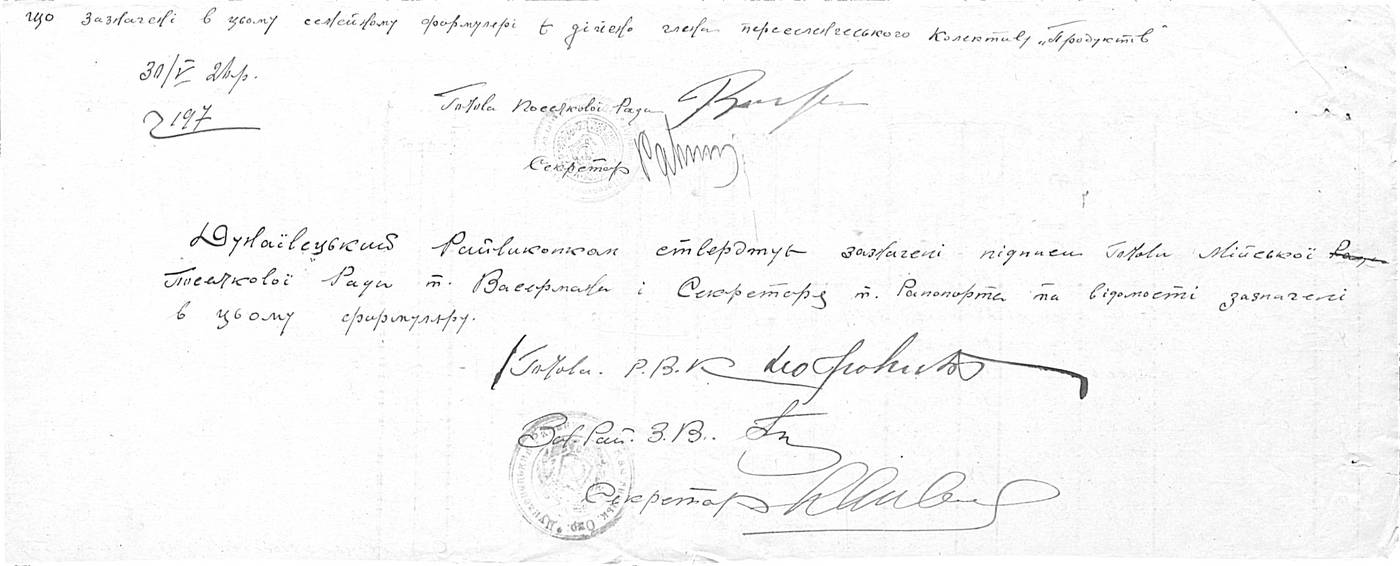 що зазначені в цьому семейному формулярі є дійсно члени переселенського Колективу „Продуктів“
30/V 26р.
197
Голова Посєлкової Ради
Секретар
Дунаївецький Райвиконком ствердтує зазначені підписи Голови Мійської
Посєлкової Ради т. Васермана і Секретаря т. Рапопорта та відомості зазначені
в цьому формуляру.
Голова Р.В.К
Зав. Рай. З.В.
Секретар